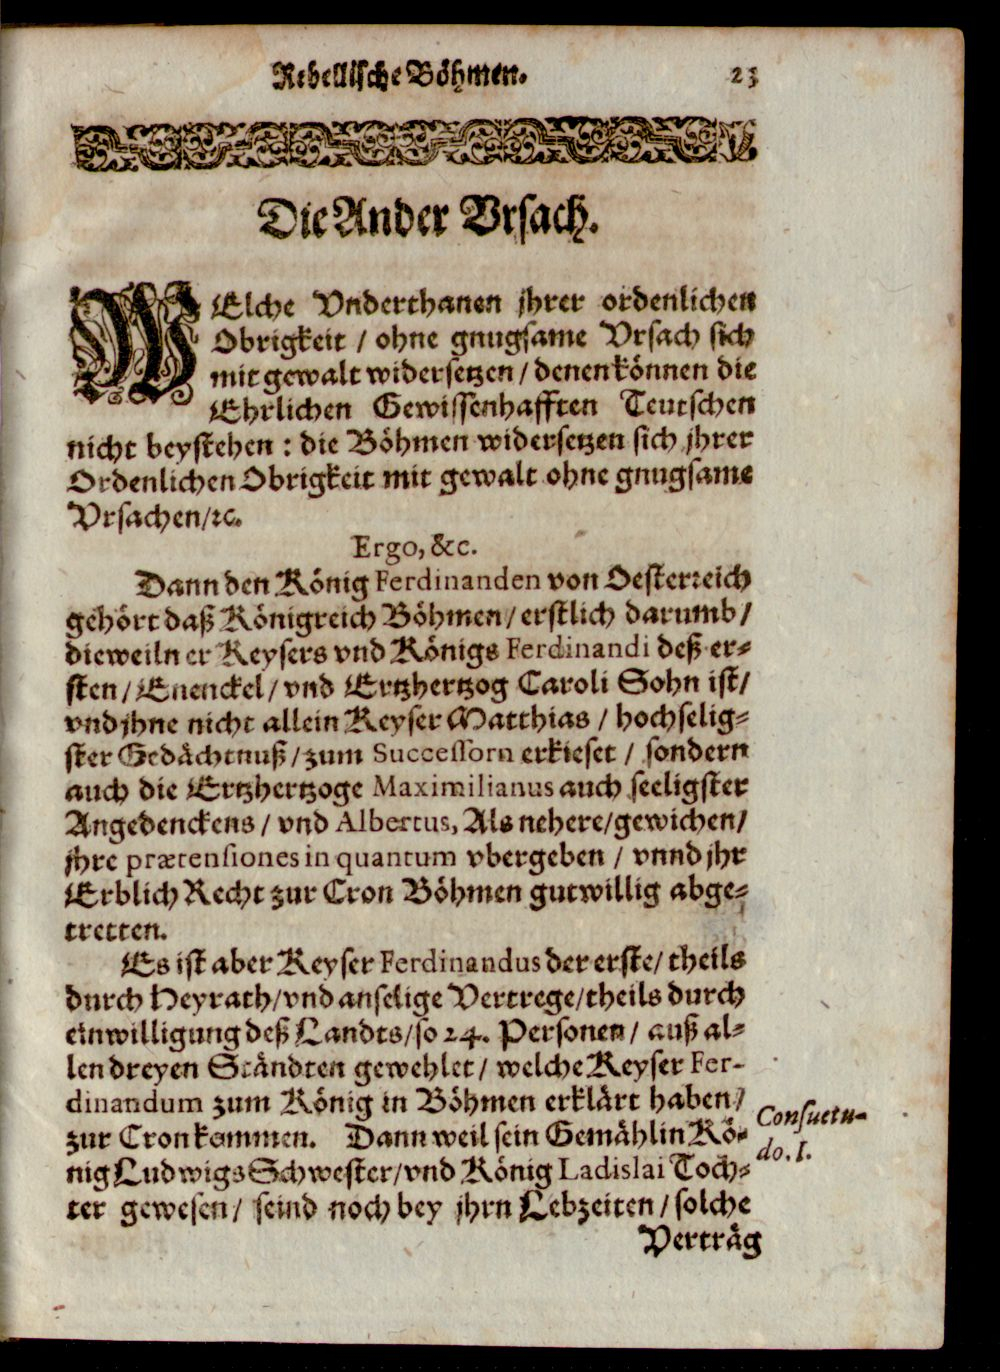 Rebellische Böhmen. 23
Die Ander Vrsach.
WElche Vnderthanen jhrer ordenlichen
Obrigkeit / ohne gnugsame Vrsach sich
mit gewalt widersetzen / denen können die
Ehrlichen Gewissenhafften Teutschen
nicht beystehen : die Böhmen widersetzen sich jhrer
Ordenlichen Obrigkeit mit gewalt ohne gnugsame
Vrsachen/ꝛc.
Ergo, &c.
Dann den König Ferdinanden von Oesterreich
gehört daß Königreich Böhmen / erstlich darumb /
dieweiln er Keysers vnd Königs Ferdinandi deß er-
sten / Enenckel / vnd Ertzhertzog Caroli Sohn ist/
vnd jhne nicht allein Keyser Matthias / hochselig-
ster Gedächtnuß / zum Successorn erkieset / sondern
auch die Ertzhertzoge Maximilianus auch seeligster
Angedenckens / vnd Albertus, Als nehere/gewichen/
jhre prætensiones in quantum vbergeben / vnnd jhr
Erblich Recht zur Cron Böhmen gutwillig abge-
tretten.
Es ist aber Keyser Ferdinandus der erste/ theils
durch Heyrath/vnd anselige Vertrege/theils durch
einwilligung deß Landts/so 24. Personen / auß al-
len dreyen Ständten gewehlet / welche Keyser Fer-
dinandum zum König in Böhmen erklärt haben/
zur Cron kommen. Dann weil sein Gemählin Kö-
nig Ludwigs Schwester/vnd König Ladislai Toch-
ter gewesen / seind noch bey jhrn Lebzeiten / solche
Verträg
Consuetu-
do. I.